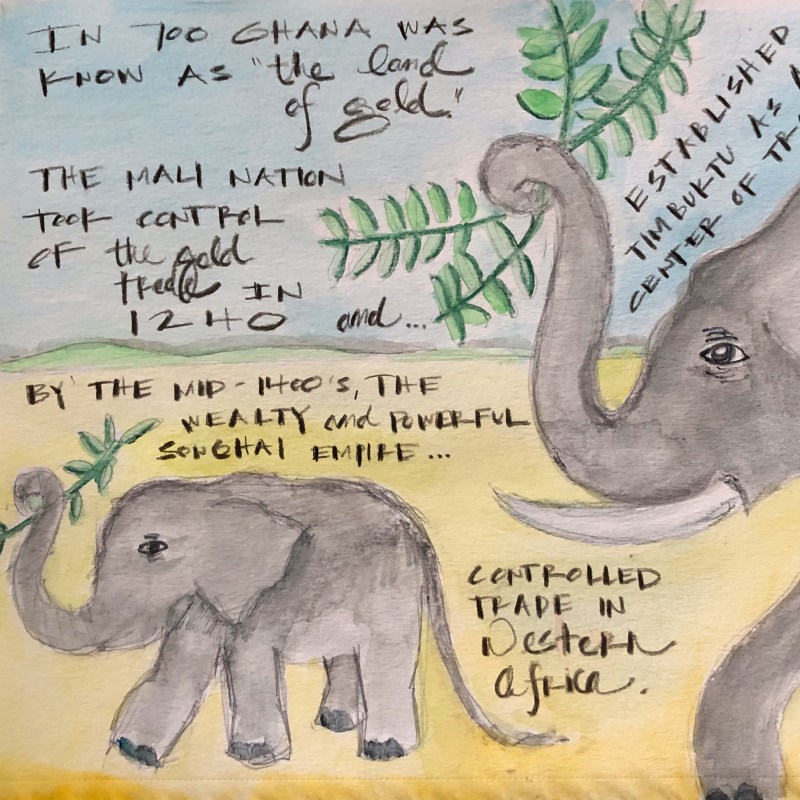 IN 700 GHANA WAS
KNOW AS "the land
of gold."
THE MALI NATION
TOOK CONTROL
OF the gold
trade IN
1240 and...
ESTABLISHED
TIMBUKTU AS A
CENTER OF
BY THE MID-1400's, THE
WEALTY and POWERFUL
SONGHAI EMPIRE...
CONTROLLED
TRADE IN
Western
Africa.